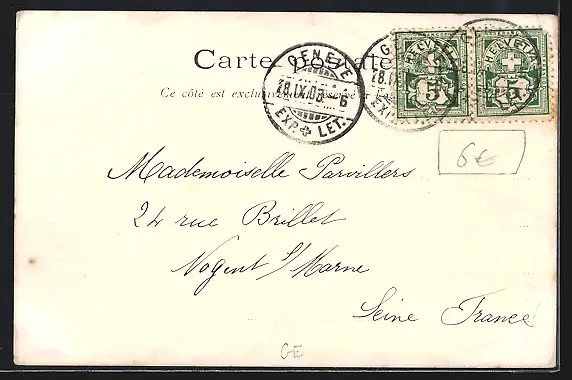 Carte Postale
Ce côté est exclusivement réservé à
GENEVE
28.IX.03. 6
EXP. LET.
HELVETIA
5
HELVETIA
5
6€
Mademoiselle Parvillers
24 rue Brillet
Nogent s/Marne
Seine France